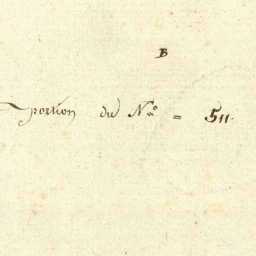 B
portion du N.º = 511.